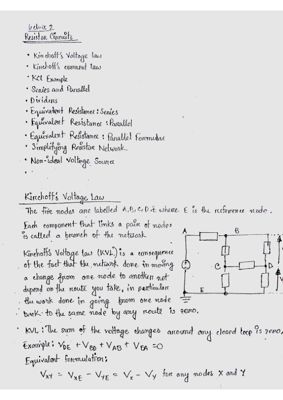 Lecture 2
Resistor Circuits
• Kirchoff's Voltage law
• Kirchoff's current law
• KCL Example
• Series and Parallel
• Dividers
• Equivalent Resistance: Series
• Equivalent Resistance: Parallel
• Equivalent Resistance: Parallel Formulae
• Simplifying Resistor Network
• Non-ideal Voltage Source
Kirchoff's Voltage Law
The five nodes are labelled A,B,C,D,E where E is the reference node.
Each component that links a pair of nodes
is called a branch of the network
Kirchoff's Voltage law (KVL) is a consequence
of the fact that the work done in moving
a charge from one node to another not
depend on the route you take, in particular
the work done in going from one node
back to the same node by any route is zero.
A B
C D
E
• KVL: The sum of the voltage changes around any closed loop is zero.
Example: V_DE + V_BD + V_AB + V_EA = 0
Equivalent formulation:
V_XY = V_XE - V_YE = V_X - V_Y for any nodes X and Y